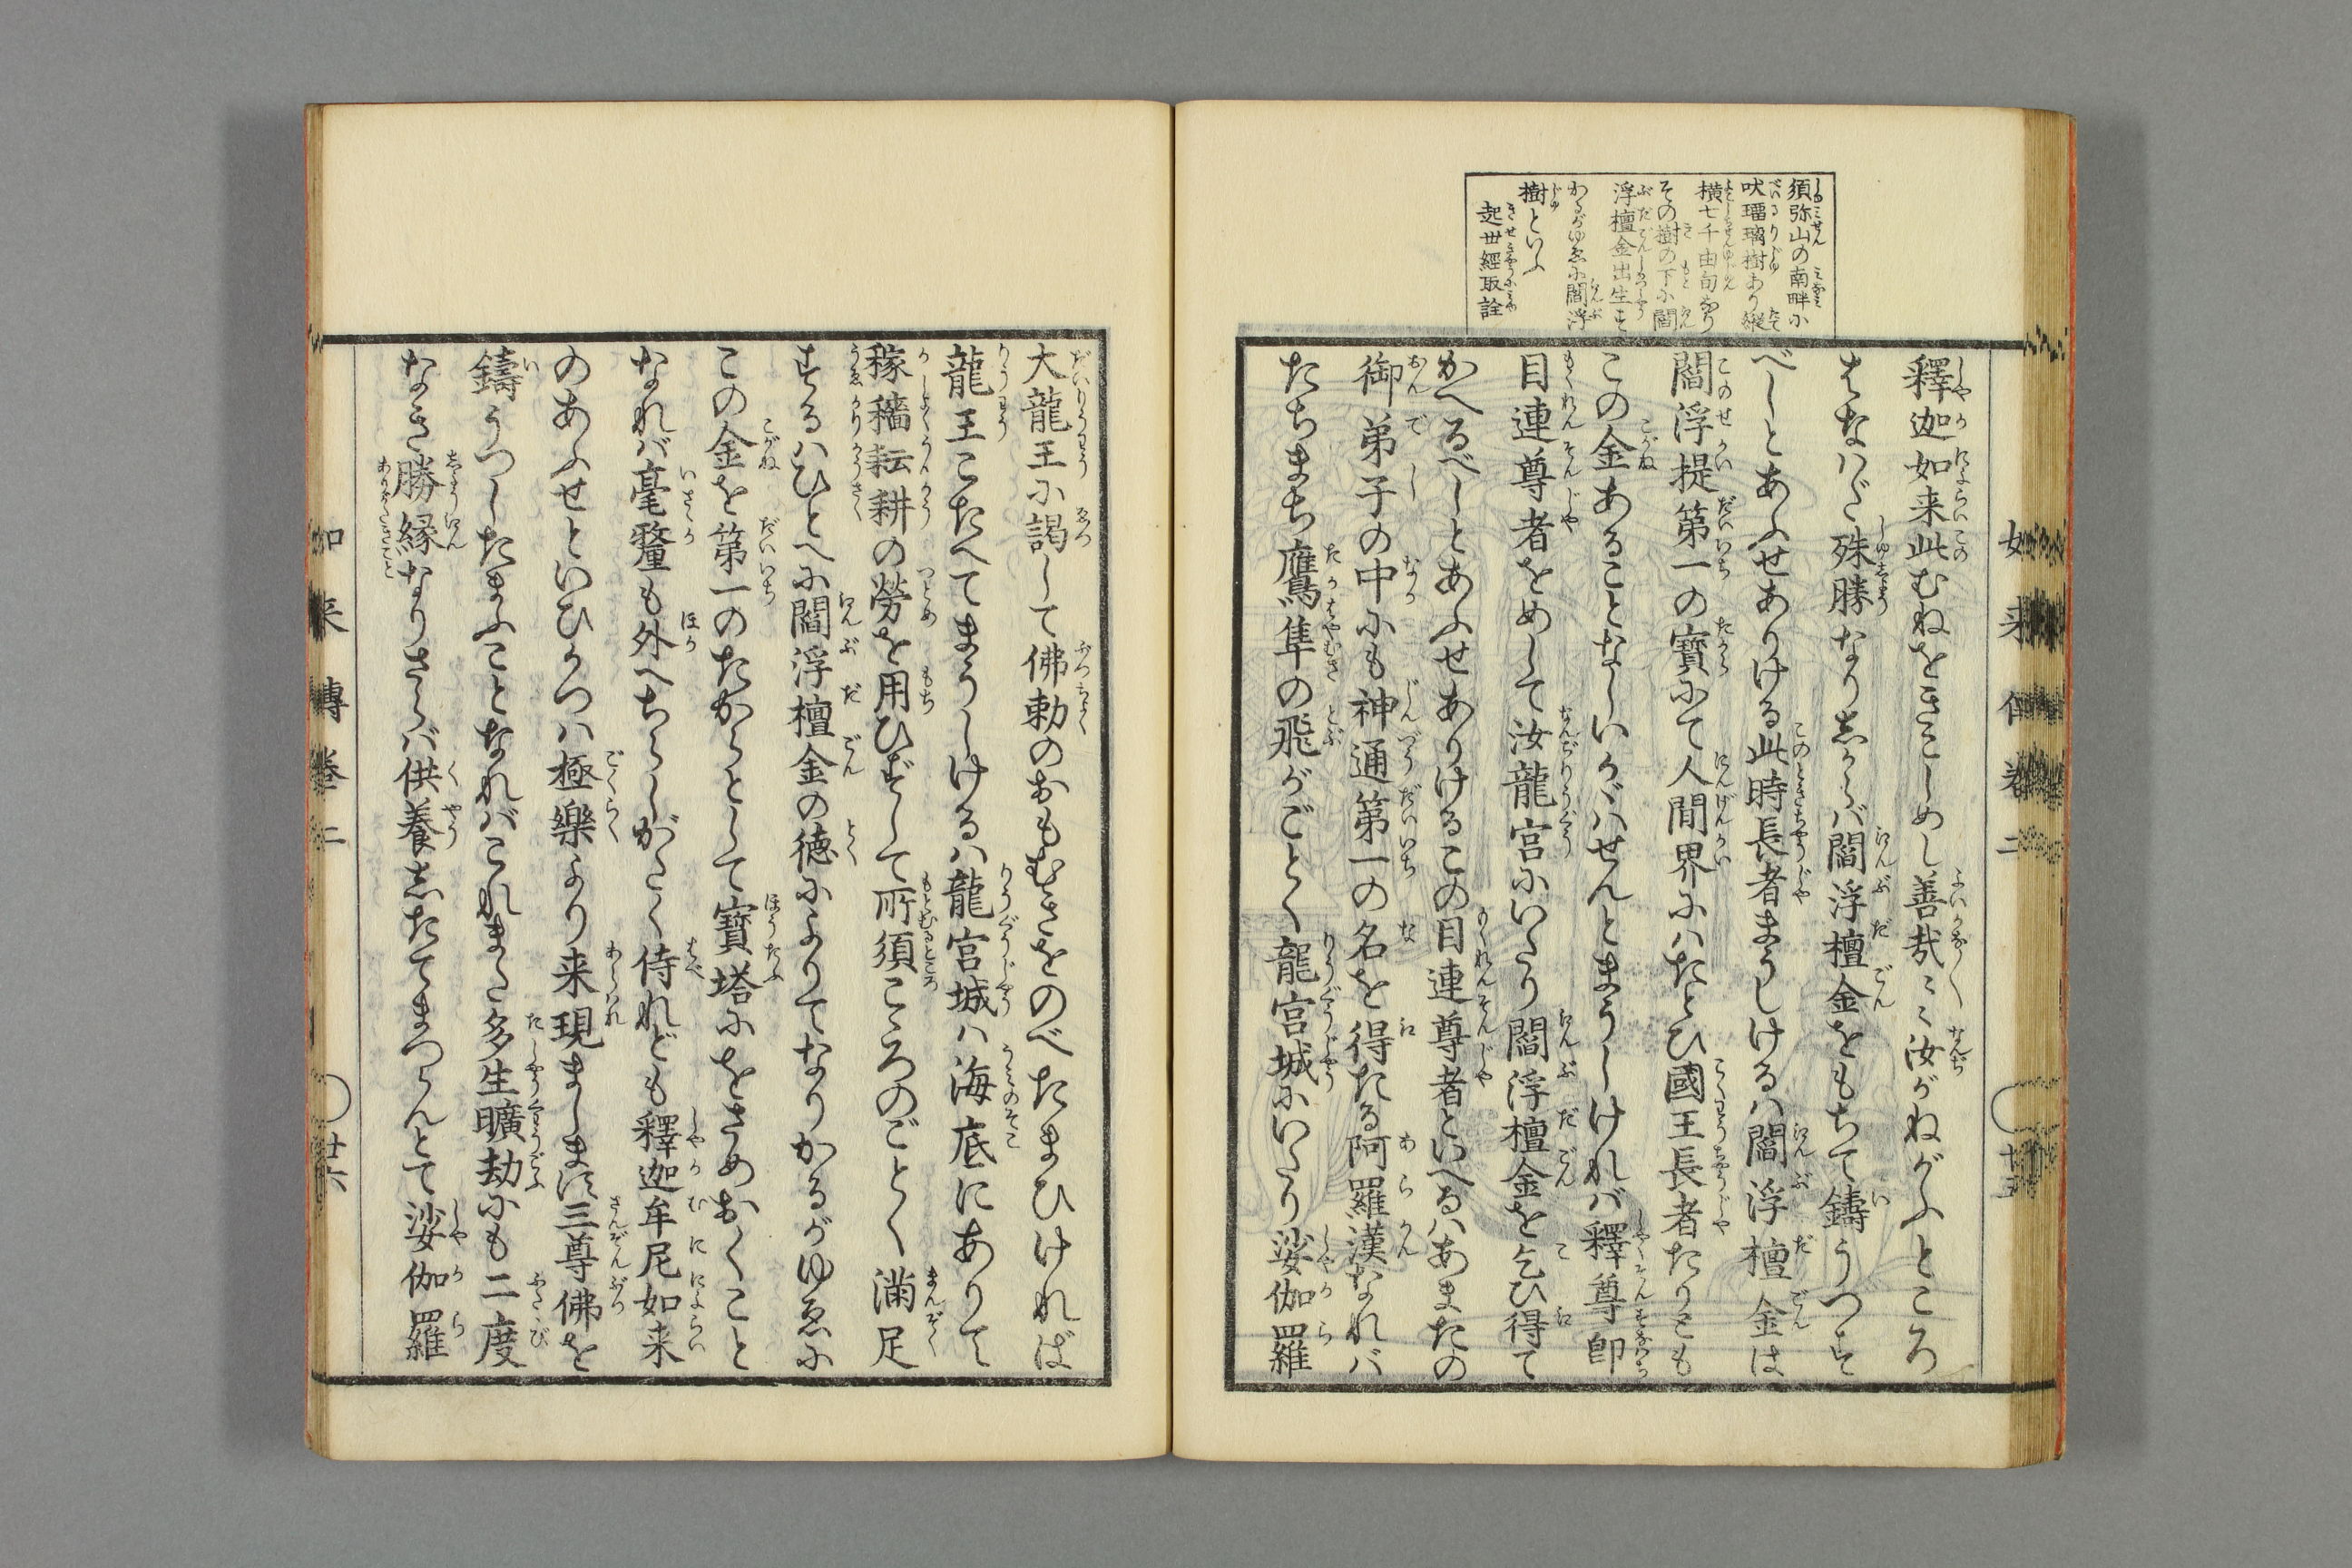 須弥山の南畔に
吠瑠璃樹あり縦
横七千由旬なり
その樹の下に閻
浮檀金出生す
かるがゆゑに閻浮
樹といふ
起世經取詮
釋迦如来此むねをきこしめし善哉〻〻汝がねがふところ
はなはだ殊勝なりしからバ閻浮檀金をもちて鑄うつす
べしとあふせありける此時長者まうしけるハ閻浮檀金は
閻浮提第一の寳にて人間界にハたとひ國王長者たりとも
この金あることなしいかゞハせんとまうしけれバ釋尊即
目連尊者をめして汝龍宮にいたり閻浮檀金を乞ひ得て
かへるべしとあふせありけるこの目連尊者といへるハあまたの
御弟子の中にも神通第一の名を得たる阿羅漢なれバ
たちまち鷹隼の飛がごとく龍宮城にいたり娑伽羅
如来傳巻二
廿五
大龍王に謁して佛勅のおもむきをのべたまひければ
龍王こたへてまうしけるハ龍宮城ハ海底にありて
稼穡耘耕の勞を用ひずして所須こゝろのごとく滿足
するハひとへに閻浮檀金の徳によりてなりかるがゆゑに
この金を第一のたからとして寳塔にをさめおくこと
なれバ毫釐も外へちらしがたく侍れども釋迦牟尼如来
のあふせといひかつハ極樂より来現まします三尊佛を
鑄うつしたまふことなれバこれまた多生曠劫にも二度
なき勝縁なりさらバ供養したてまつらんとて娑伽羅
如来傳巻二
廿六